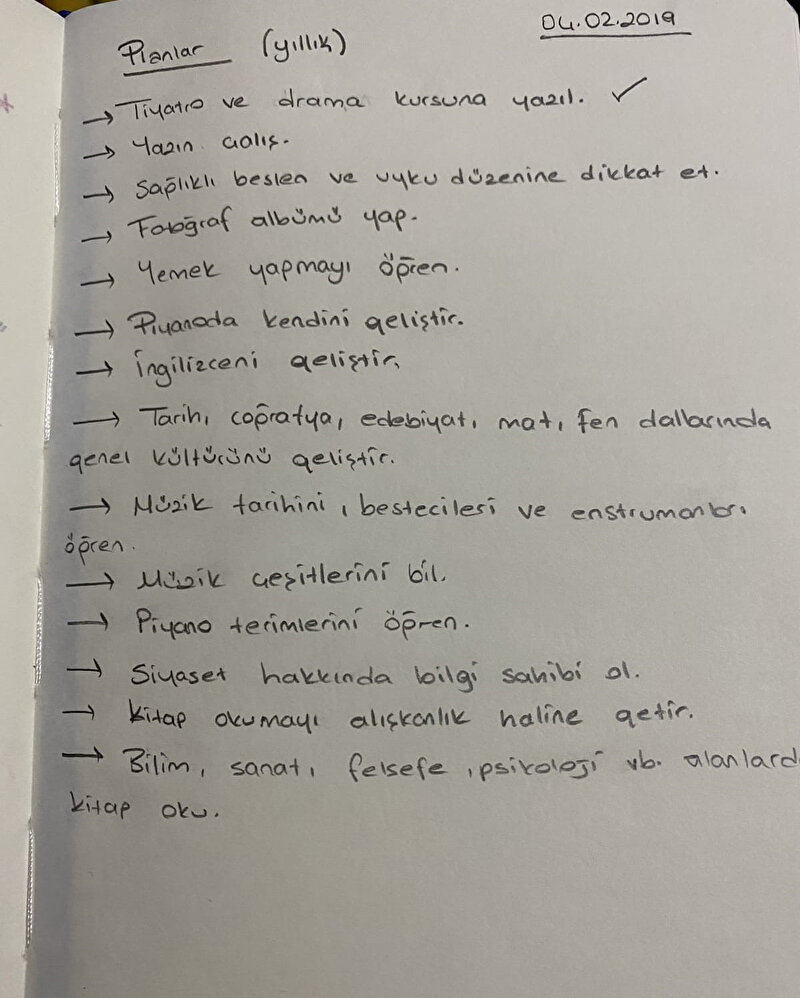 04.02.2019
Planlar (yıllık)
→ Tiyatro ve drama kursuna yazıl. ✓
→ Yazın çalış.
→ Sağlıklı beslen ve uyku düzenine dikkat et.
→ Fotoğraf albümü yap.
→ Yemek yapmayı öğren.
→ Piyanoda kendini geliştir.
→ İngilizceni geliştir.
→ Tarih, coğrafya, edebiyat, mat, fen dallarında
genel kültürünü geliştir.
→ Müzik tarihini, bestecileri ve enstrumanları
öğren.
→ Müzik çeşitlerini bil.
→ Piyano terimlerini öğren.
→ Siyaset hakkında bilgi sahibi ol.
→ Kitap okumayı alışkanlık haline getir.
→ Bilim, sanat, felsefe, psikoloji vb. alanlard
kitap oku.